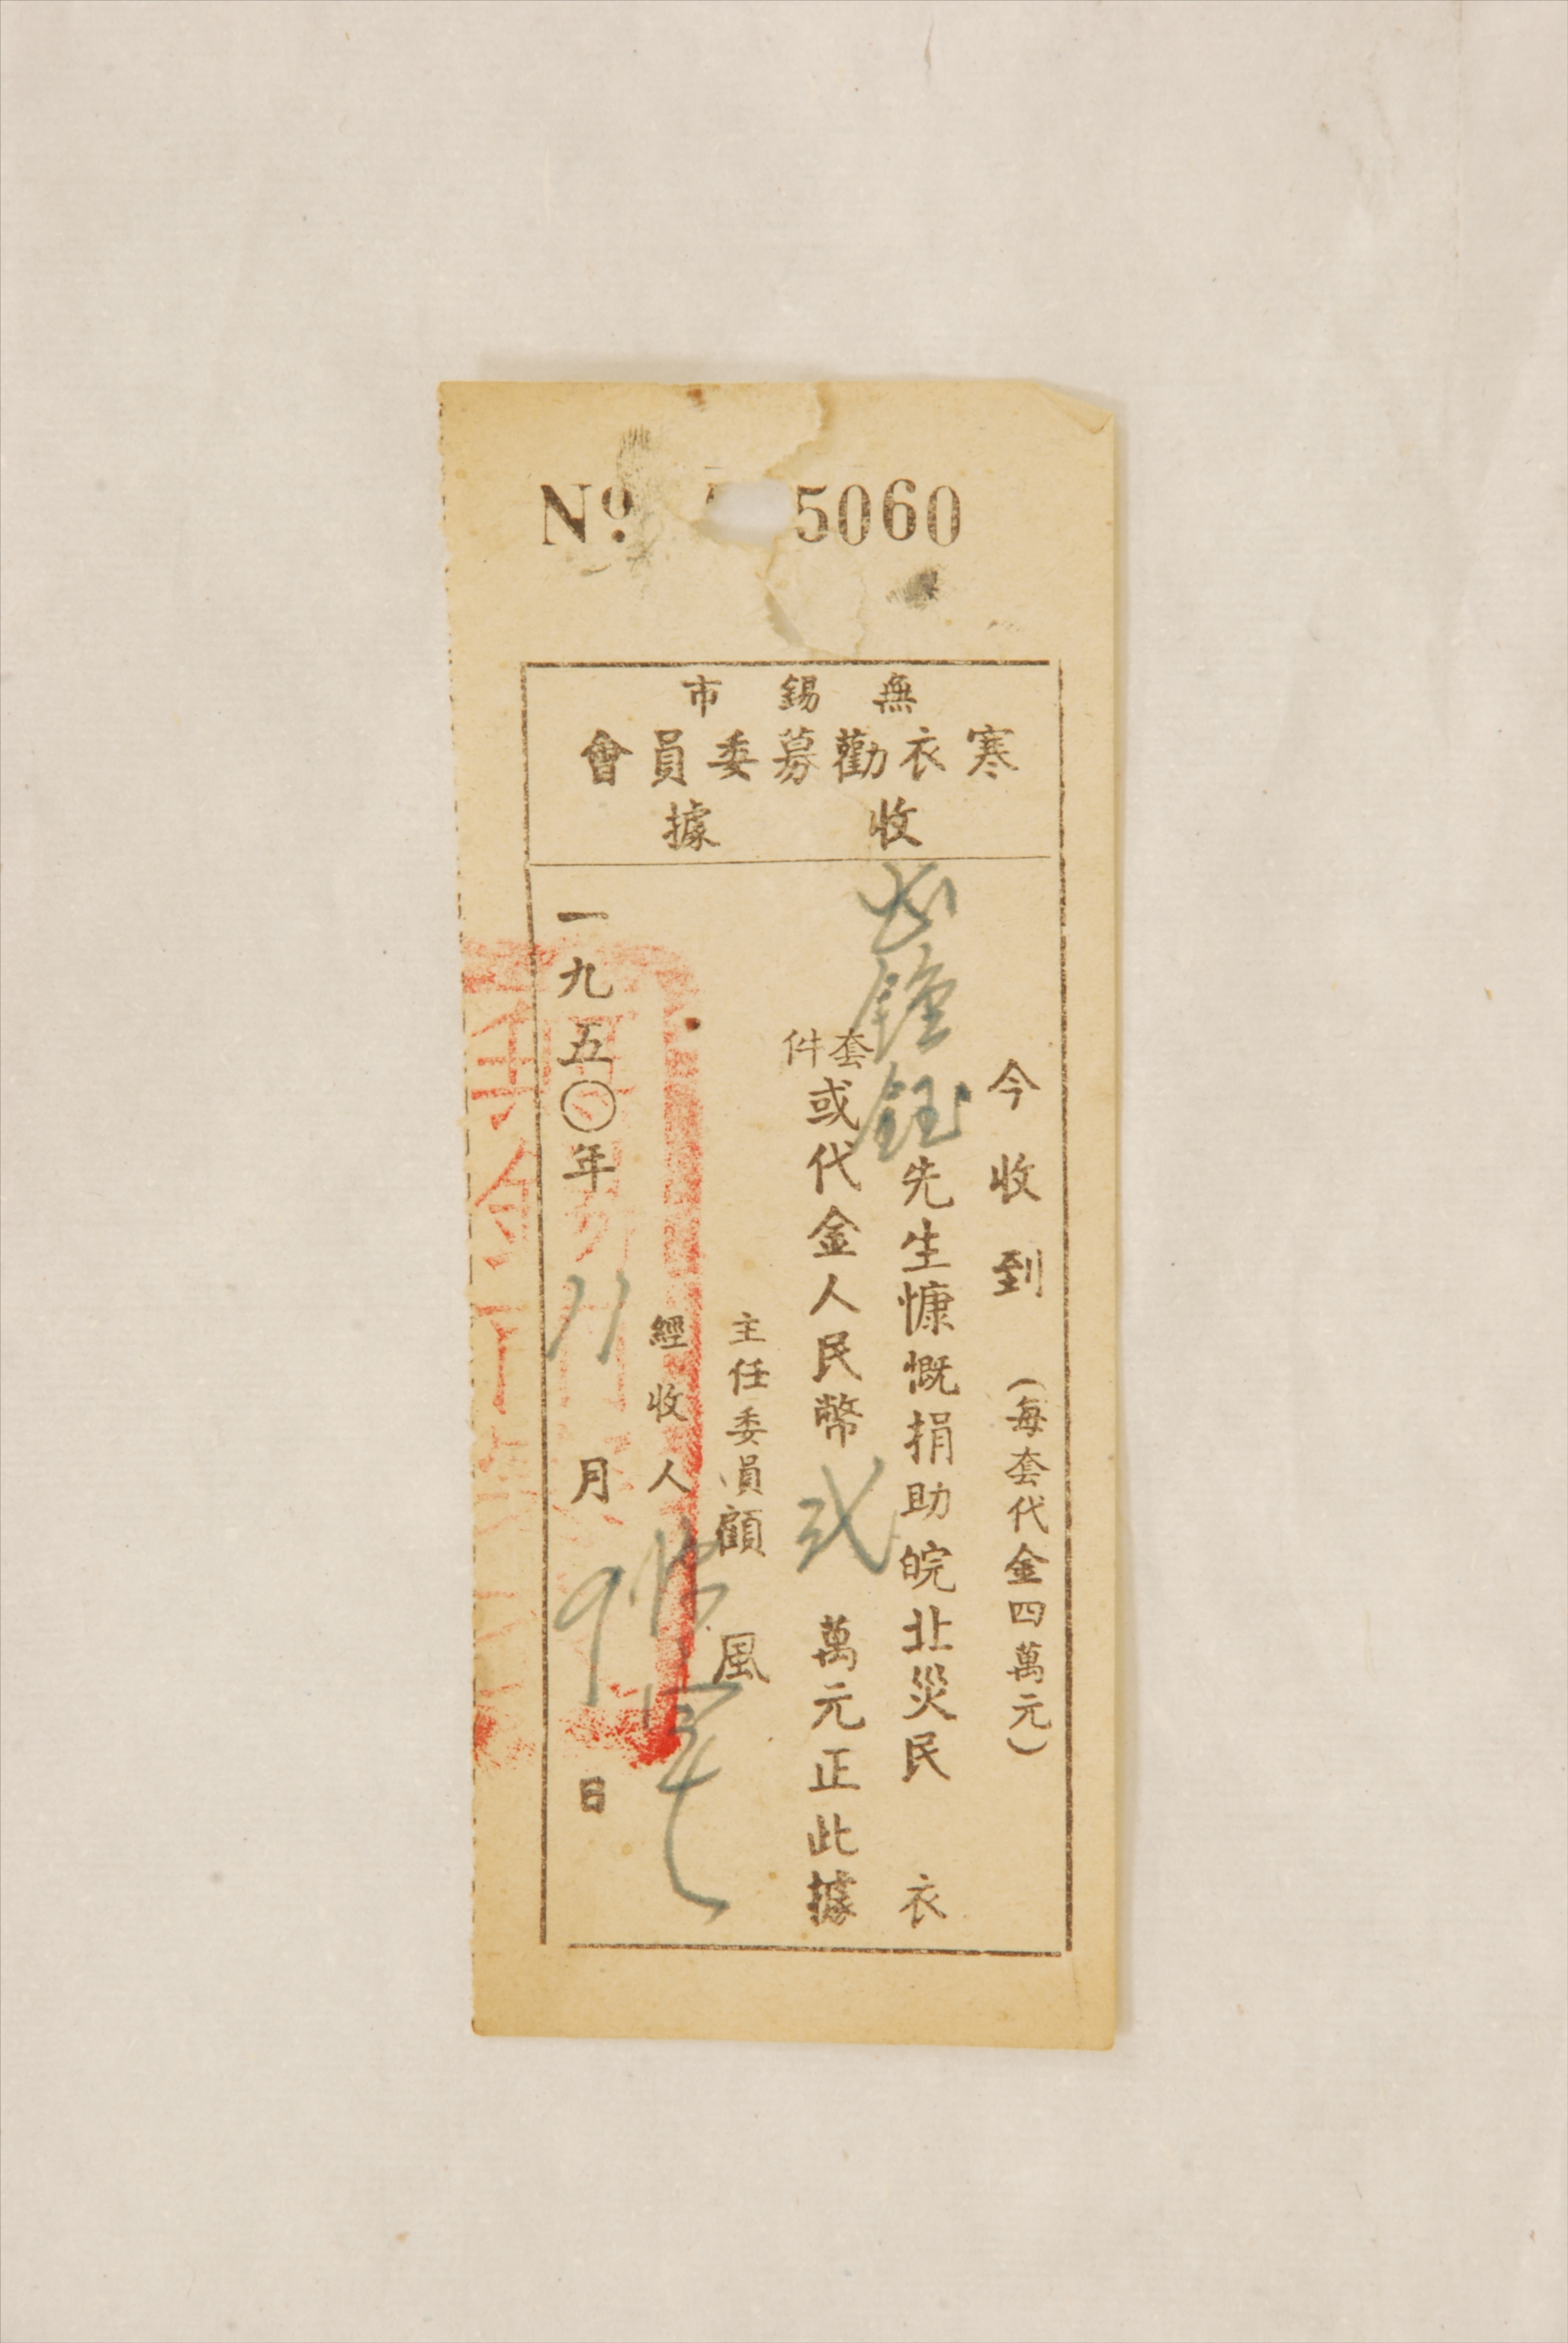 No. 5060
無錫市
寒衣勸募委員會
收據
今收到（每套代金四萬元）
鈺先生慷慨捐助皖北災民 衣
套件或代金人民幣貳萬元正此據
主任委員顧 風
經收人
一九五〇年11月9日